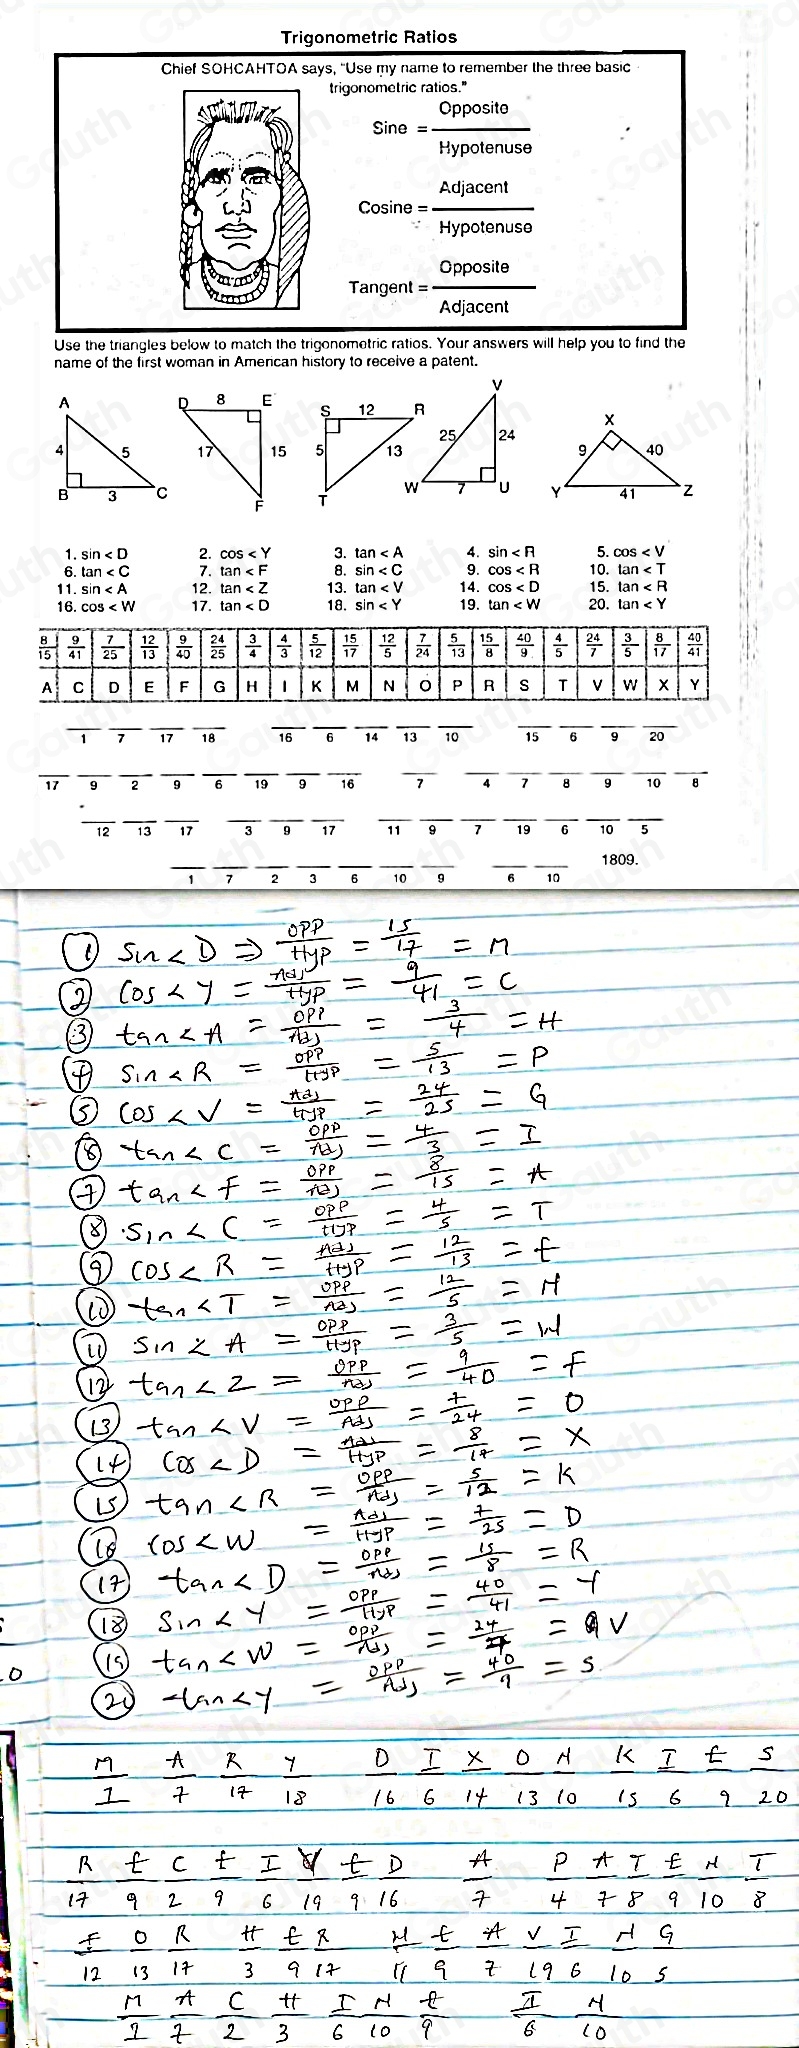 Trigonometric Ratios
Chief SOHCAHTOA says, "Use my name to remember the three basic
trigonometric ratios."
Sine = Opposite / Hypotenuse
Cosine = Adjacent / Hypotenuse
Tangent = Opposite / Adjacent
Use the triangles below to match the trigonometric ratios. Your answers will help you to find the
name of the first woman in American history to receive a patent.
A 4 5 B 3 C
D 8 E 17 15 F
S 12 R 5 13 T
V 25 24 W 7 U
X 9 40 Y 41 Z
1. sin < D 2. cos < Y 3. tan < A 4. sin < R 5. cos < V
6. tan < C 7. tan < F 8. sin < C 9. cos < R 10. tan < T
11. sin < A 12. tan < Z 13. tan < V 14. cos < D 15. tan < R
16. cos < W 17. tan < D 18. sin < Y 19. tan < W 20. tan < Y
8/15 9/41 7/25 12/13 9/40 24/25 3/4 4/3 5/12 15/17 12/5 7/24 5/13 15/8 40/9 4/5 24/7 3/5 8/17 40/41
A C D E F G H I K M N O P R S T V W X Y
1 7 17 18 16 6 14 13 10 15 6 9 20
17 9 2 9 6 19 9 16 7 4 7 8 9 10 8
12 13 17 3 9 17 11 9 7 19 6 10 5
1 7 2 3 6 10 9 6 10 1809.
① Sin < D ⇒ OPP/Hyp = 15/17 = M
② Cos < Y = Adj/Hyp = 9/41 = C
③ tan < A = OPP/Adj = 3/4 = H
④ Sin < R = OPP/Hyp = 5/13 = P
⑤ Cos < V = Adj/Hyp = 24/25 = G
⑥ tan < C = OPP/Adj = 4/3 = I
⑦ tan < F = OPP/Adj = 8/15 = A
⑧ Sin < C = OPP/Hyp = 4/5 = T
⑨ Cos < R = Adj/Hyp = 12/13 = E
⑩ tan < T = OPP/Adj = 12/5 = N
⑪ Sin < A = OPP/Hyp = 3/5 = W
⑫ tan < Z = OPP/Adj = 9/40 = F
⑬ tan < V = OPP/Adj = 7/24 = O
⑭ Cos < D = Adj/Hyp = 8/17 = X
⑮ tan < R = OPP/Adj = 5/12 = K
⑯ Cos < W = Adj/Hyp = 7/25 = D
⑰ tan < D = OPP/Adj = 15/8 = R
⑱ Sin < Y = OPP/Hyp = 40/41 = Y
⑲ tan < W = OPP/Adj = 24/7 = V
⑳ tan < Y = OPP/Adj = 40/9 = S
M A R Y D I X O N K I E S
1 7 17 18 16 6 14 13 10 15 6 9 20
R E C E I V E D A P A T E N T
17 9 2 9 6 19 9 16 7 4 7 8 9 10 8
F O R H E R W E A V I N G
12 13 17 3 9 17 11 9 7 19 6 10 5
M A C H I N E I N
1 7 2 3 6 10 9 6 10